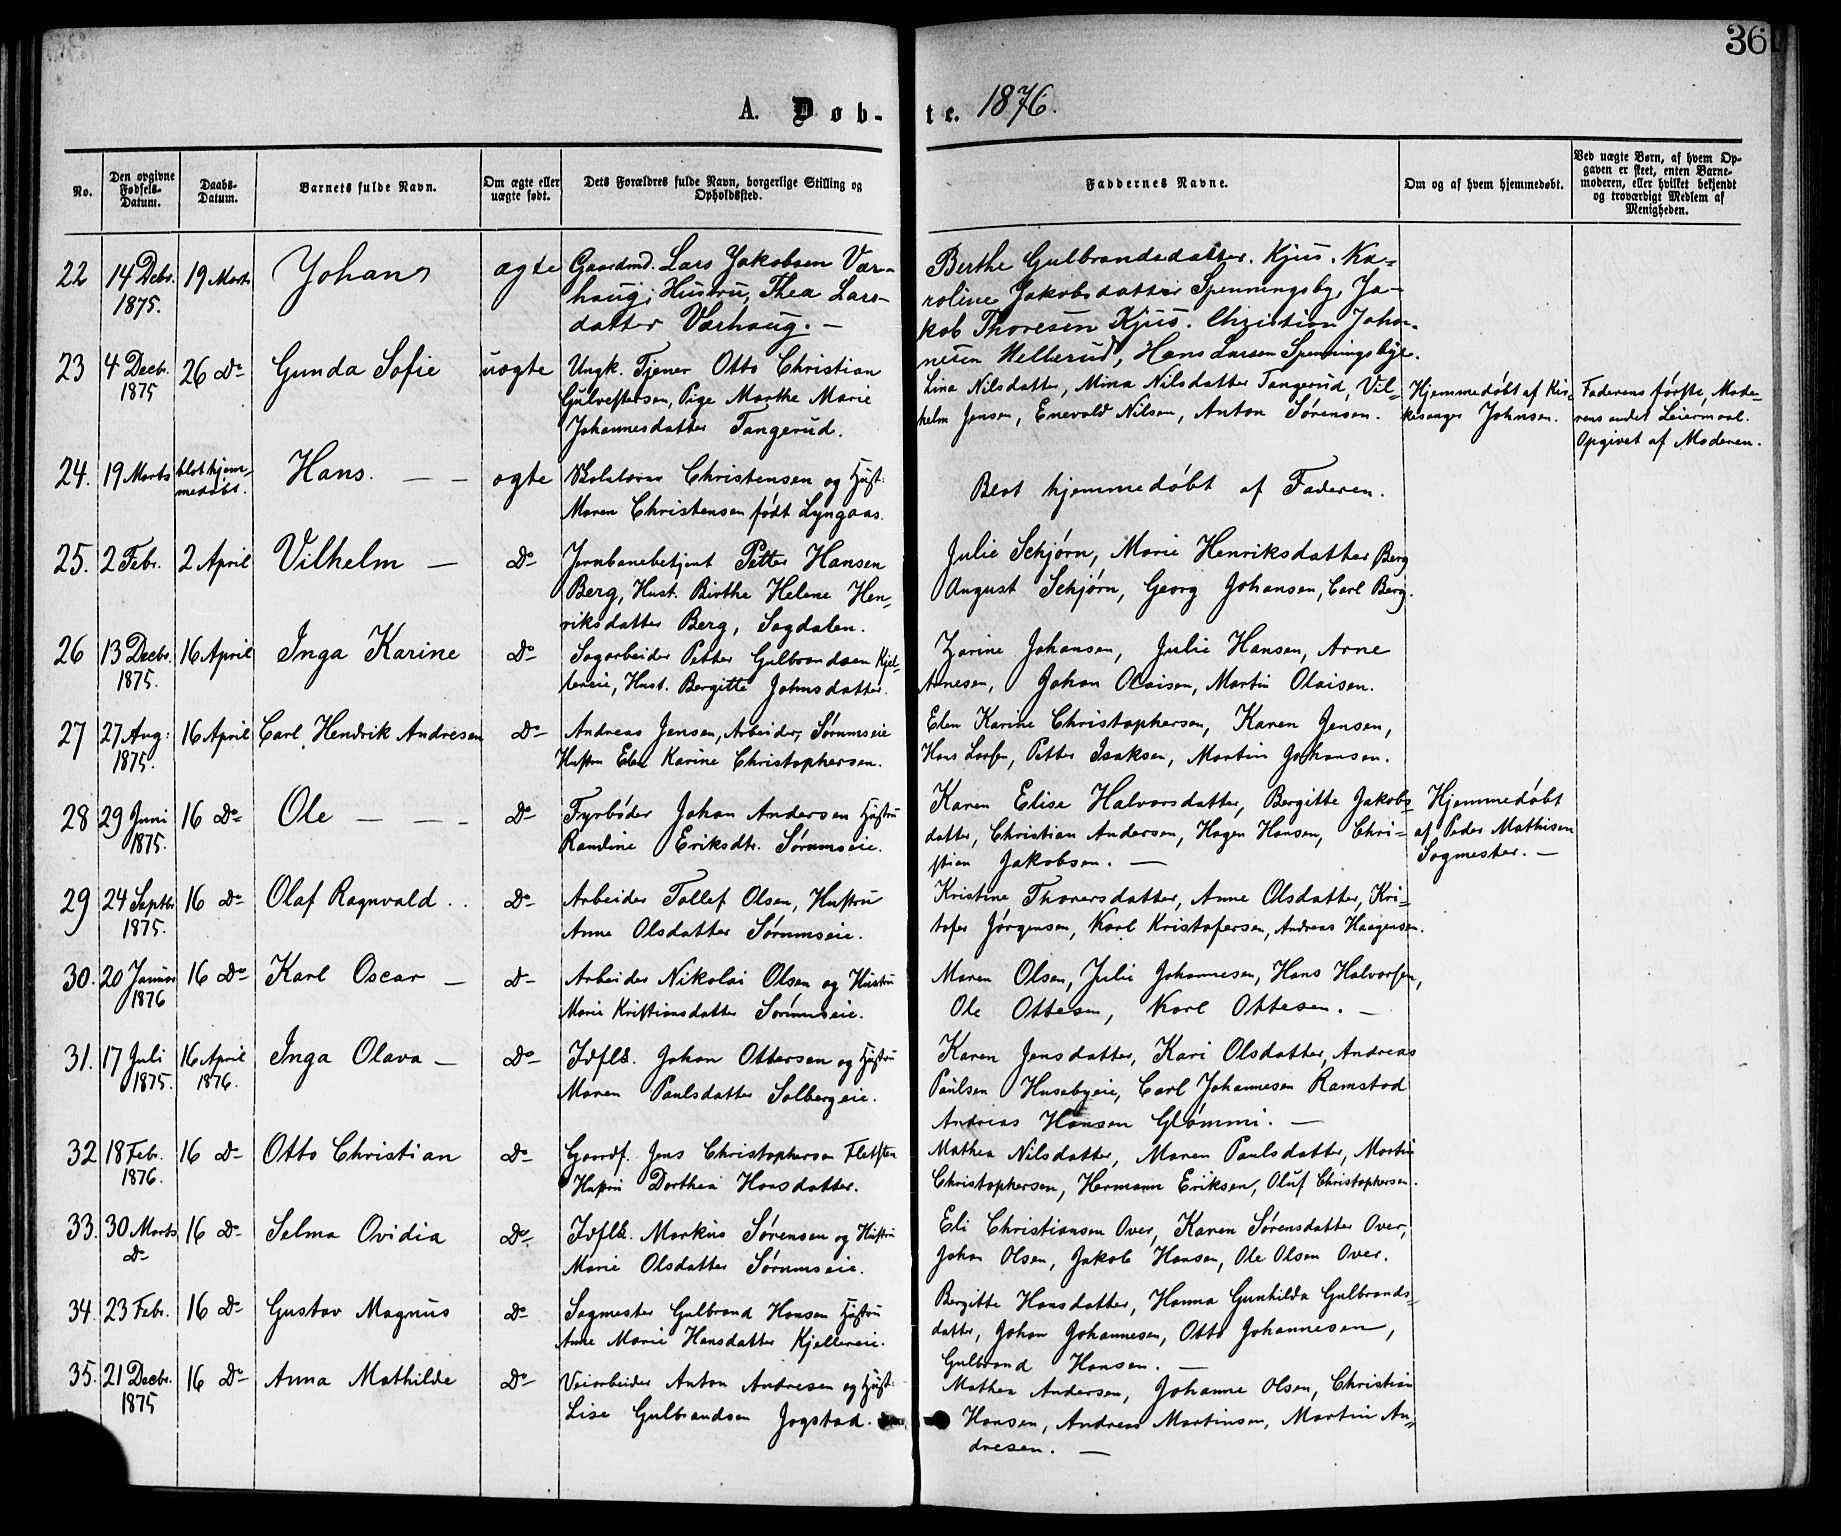 36
A. Døb-
te. 1876.
No.
Den opgivne Fødsels-Datum.
Daabs-Datum.
Barnets fulde Navn.
Om ægte eller uægte født.
Dets Forældres fulde Navn, borgerlige Stilling og Opholdssted.
Faddernes Navne.
Om og af hvem hjemmedøbt.
Ved uægte Børn, af hvem Opgaven er skeet, enten Barnemoderen, eller hvilket bekjendt og troværdigt Medlem af Menigheden.
22 14 Debr. 1875. 19 Marts Johan ægte
Gaardmd. Lars Jakobsen Var-
haug; Hustru, Thea Lars-
datter Varhaug. —
Berthe Gulbrandsdatter. Kjus. Ka-
roline Jakobsdatter Spenningsby, Ja-
kob Thoresen Kjus. Christian Johan-
nesen Mellerud, Hans Larsen Spenningsbye.
23 4 Decbr. 1875 26 Do Gunda Sofie uægte
Ungk. Tjener Otto Christian
Gulvestersen, Pige Marthe Marie
Johannesdatter Tangerud.
Lina Nilsdatter, Mina Nilsdatter Tangerud, Vil-
helm Jensen, Enevold Nilsen, Anton Sørensen.
Hjemmedøbt af Kir-
kesanger Johnsen.
Faderens første, Mode-
rens andet Leiermaal.
Opgivet af Moderen.
24. 19 Marts blot hjem-
medøbt. Hans. — — ægte
Christensen og Hust.
Maren Christensen født Lyngaas.
Blot hjemmedøbt af Faderen.
25. 2 Febr. 2 April Vilhelm — Do
Jernbanebetjent Petter Hansen
Berg, Hust. Birthe Helene Hen-
riksdatter Berg, Sagdalen.
Julie Schjørn, Marie Henriksdatter Berg
August Schjørn, Georg Johansen, Carl Berg.
26 13 Decbr. 1875. 16 April Inga Karine Do
Sagarbeider Petter Gulbrandsen Kjel-
lereie, Hust. Bergitte Johnsdatter.
Johansen, Julie Hansen, Arne
Arnesen, Johan Olaisen, Martin Olaisen.
27 27 Aug: 1875. 16 April Carl Hendrik Andresen Do
Andreas Jensen, Arbeider, Sørumseie
Hustru Elen Karine Christophersen.
Elen Karine Christophersen, Karen Jensen,
Hans Larsen, Petter Isaksen, Martin Johansen.
28 29 Juni 1875. 16 Do Ole — — — Do
Fyrbøder Johan Andersen Hustru
Eriksdtr. Sørumseie.
Karen Elise Halvorsdatter, Bergitte Jakobs-
datter, Christian Andersen, Hagen Hansen, Chri-
stian Jakobsen. —
Hjemmedøbt
af Peder Mathisen
Sagmester. —
29 24 Septbr 1875. 16 Do Olaf Ragnvald . . Do
Arbeider Tollef Olsen, Hustru
Anne Olsdatter Sørumseie.
Kristine Thorersdatter, Anne Olsdatter, Kri-
tofer Jørgensen, Karl Kristofersen, Andreas Haagensen.
30. 20 Januar 1876 16 Do Karl Oscar — Do
Arbeider Nikolai Olsen og Hustru
Marie Kristiansdatter Sørumseie.
Maren Olsen, Julie Johannesen, Hans Halvorsen,
Ole Ottesen, Karl Ottesen. —
31. 17 Juli 1875. 16 April 1876. Inga Olava — Do
Idfls. Johan Ottersen og Hustru
Maren Paulsdatter Solbergeie.
Karen Jensdatter, Kari Olsdatter, Andreas
Paulsen Husebyeie, Carl Johannesen Ramstad
Andreas Hansen Glommi. —
32 18 Feb. 1876. 16 Do Otto Christian Do
Gaardf. Jens Christophersen
Hustru Dorthea Hansdatter.
Mathea Nilsdatter, Maren Paulsdatter, Martin
Christophersen, Hermann Eriksen, Oluf Christophersen.
33. 30 Marts Do 16 Do Selma Ovidia Do
Idfls. Markus Sørensen og Hustru
Marie Olsdatter Sørumseie.
Eli Christiansen Over, Karen Sørensdatter Over,
Johan Olsen, Jakob Hansen, Ole Olsen Over.
34. 23 Febr. 16 Do Gustav Magnus Do
Sagmester Gulbrand Hansen Hustru
Anne Marie Hansdatter Kjellereie.
Bergitte Hansdatter, Hanna Gunhilda Gulbrands-
datter, Johan Johannesen, Otto Johannesen,
Gulbrand Hansen. —
35. 21 Decbr. 1875 16 Do Anna Mathilde Do
Veiarbeider Anton Andresen og Hust:
Lise Gulbrandsen Jogstad.
Mathea Andersen, Johanne Olsen, Christian
Hansen, Andreas Martinsen, Martin An-
dresen. —